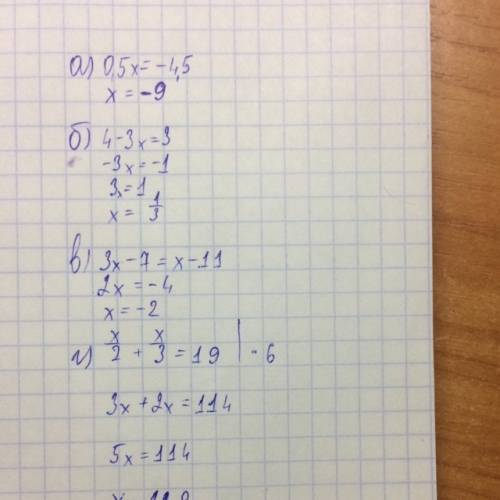 а) 0,5x = -4,5
x = -9
б) 4-3x=3
-3x=-1
3x=1
x = 1/3
в) 3x-7=x-11
2x=-4
x=-2
г) x/2 + x/3 = 19 | · 6
3x+2x=114
5x=114